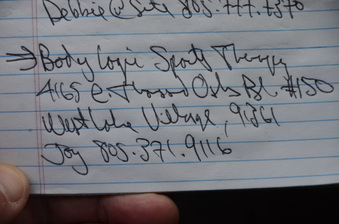 Debbie @ Site 805.777.7370
→ Body Logic Sports Therapy
4165 E Thousand Oaks Bl. #150
Westlake Village, 91361
Joy 805.371.9116